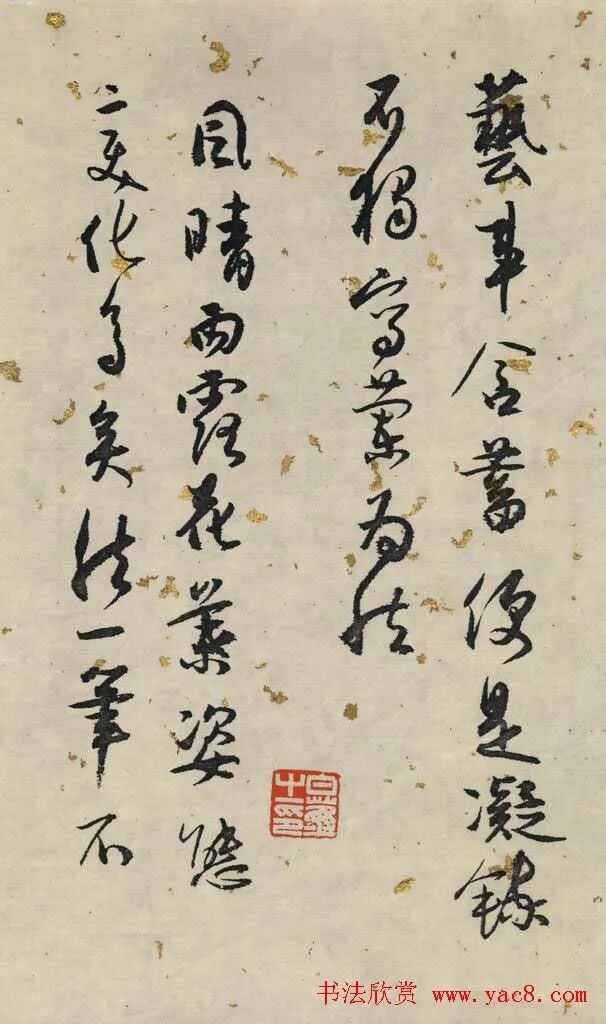 藝事含蓄便是凝鍊
不獨寫蘭為然
風晴雨露花葉姿態
二更化多矣然一筆不
书法欣赏 www.yac8.com